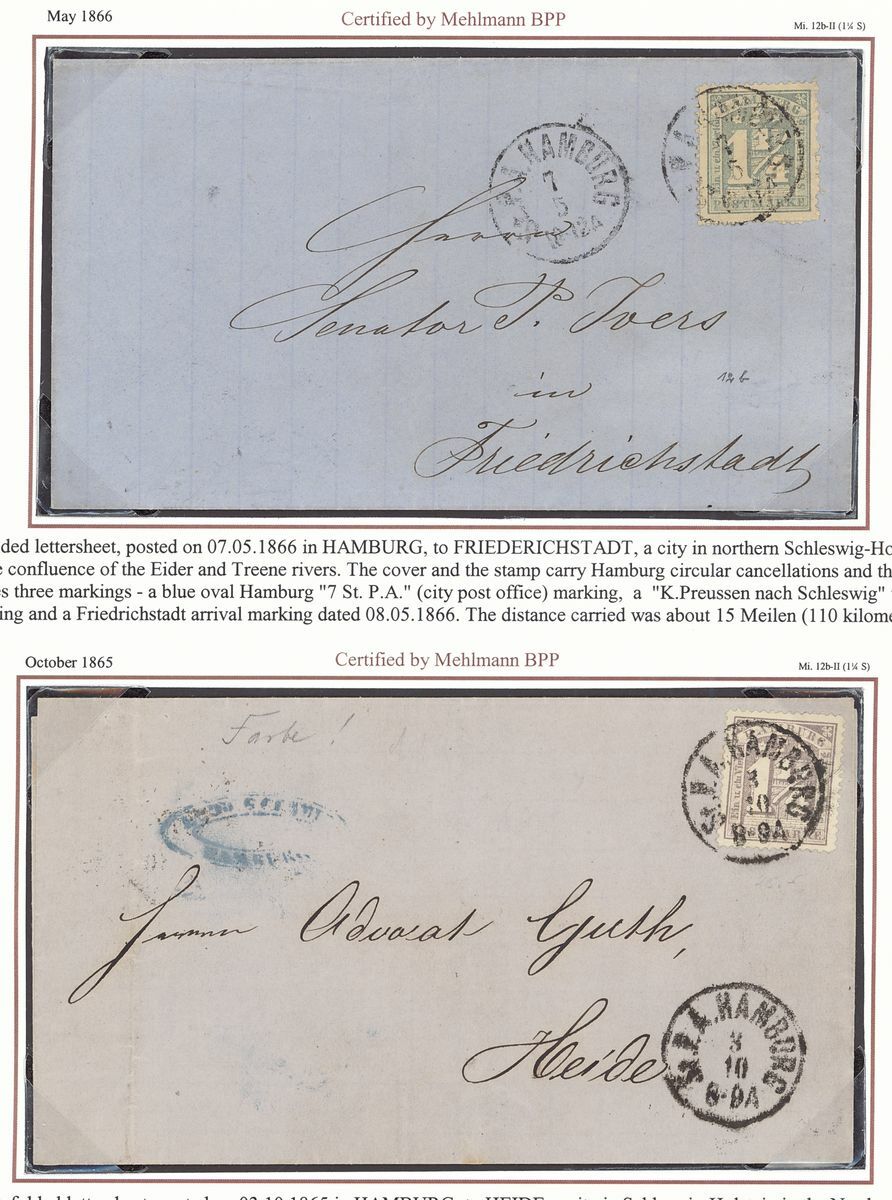 May 1866
Certified by Mehlmann BPP
Mi. 12b-II (1¼ S)
St.P.A. HAMBURG
7
5
12A
HAMBURG
1¼
POSTMARKE
Herrn
Senator P. Ivers
12 b
in
Friedrichstadt
ded lettersheet, posted on 07.05.1866 in HAMBURG, to FRIEDERICHSTADT, a city in northern Schleswig-Ho
e confluence of the Eider and Treene rivers. The cover and the stamp carry Hamburg circular cancellations and th
s three markings - a blue oval Hamburg "7 St. P.A." (city post office) marking, a "K.Preussen nach Schleswig"
ing and a Friedrichstadt arrival marking dated 08.05.1866. The distance carried was about 15 Meilen (110 kilome
October 1865
Certified by Mehlmann BPP
Mi. 12b-II (1¼ S)
Farbe !
HAMBURG
St.P.A. HAMBURG
3
10
8-9A
HAMBURG
1¼
HAMBURG
Herrn Advocat Guth,
Heide
St.P.A. HAMBURG
3
10
8-9A